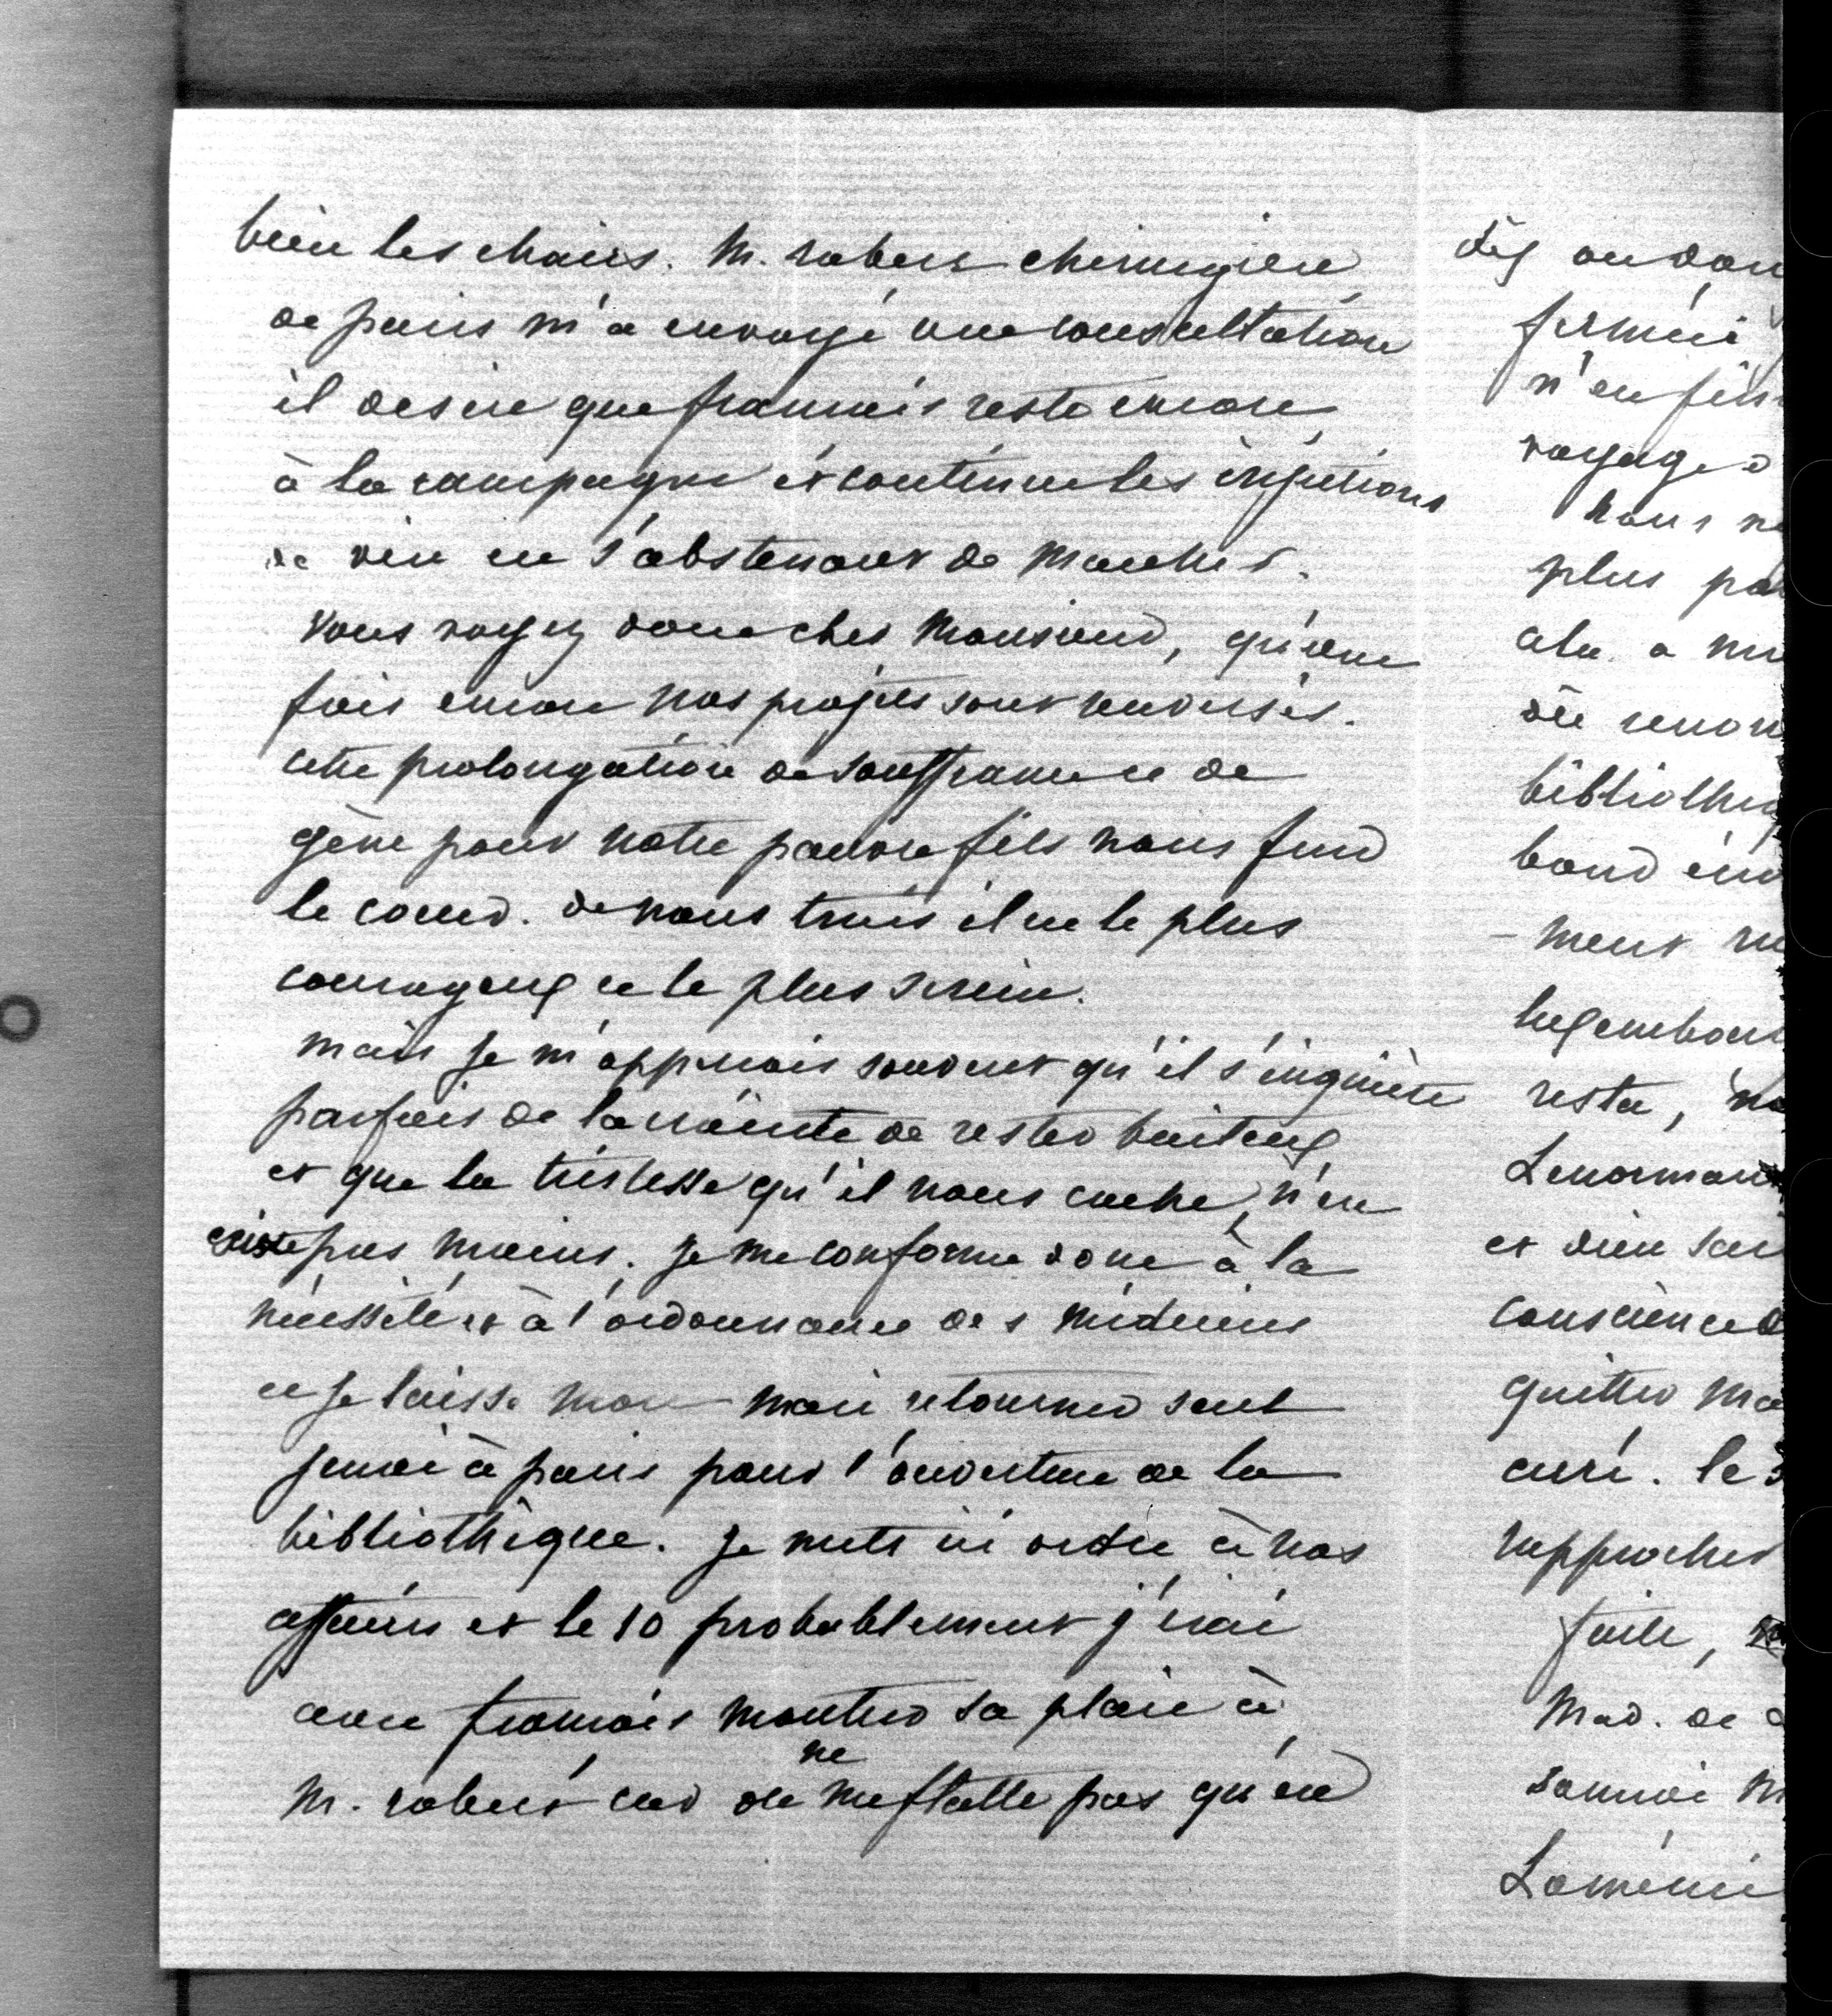 bien les chairs. M. robert chirurgien
de paris m'a envoyé une consultation
il desire que francois reste encore
à la campagne et continue les injections
de vin en s'abstenant de marcher.
Vous voyez donc cher Monsieur, qu'une
fois encore nos projets sont renversés.
cette prolongation de souffrance et de
gêne pour notre pauvre fils nous fend
le coeur. de nous trois il est le plus
courageux et le plus serein.
mais je m'apperçois souvent qu'il s'inquiète
parfois de la crainte de rester boiteux
et que la tristesse qu'il nous cache, n'en
existe pas moins. je me conforme donc à la
nécessité et à l'ordonnance des médecins
et je laisse mon mari retourner seul
jeudi à paris pour l'ouverture de la
bibliothèque. je mets ici ordre à nos
affaires et le 10 probablement j'irai
avec francois montrer sa plaie à
M. robert car on ne me flatte pas qu'en
dès
fermée
n'en
voyage
nous
plus
cela a
de
bibliothèq
bord
-ment
luxembour
resta,
Lenorman
et dieu
conscience
quitter
curé. le
rapprocher
faite,
Mad. de
Loménie